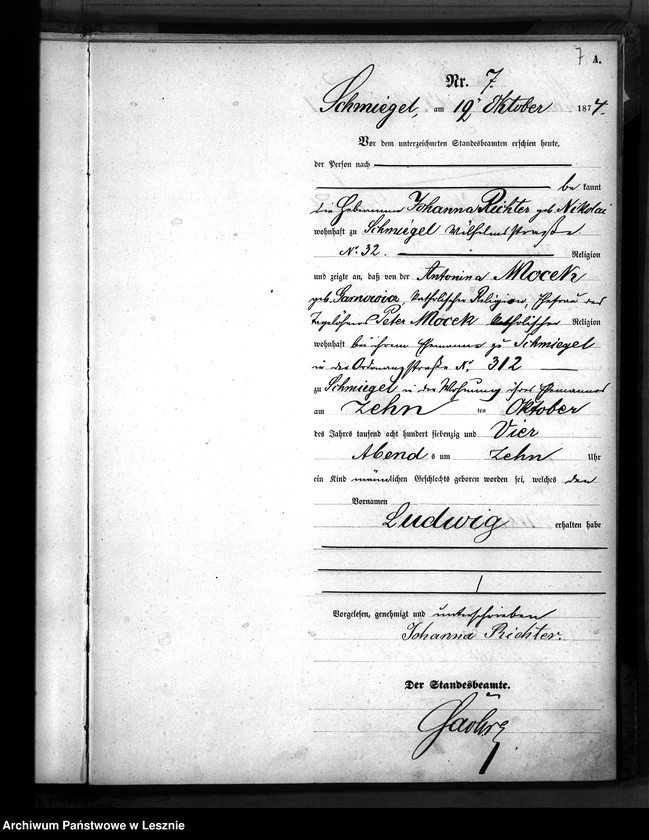 7 A.
Nr. 7.
Schmiegel, am 12 Oktober 1874.
Vor dem unterzeichneten Standesbeamten erschien heute,
der Person nach
be kannt
die Hebamme Johanna Richter geb. Nikolai
wohnhaft zu Schmiegel Wilhelmsstraße
No 32. Religion
und zeigte an, daß von der Antonina Mocek
geb. katholischer Religion, Ehefrau des
Tagelöhners Peter Mocek katholischer Religion
wohnhaft bei ihrem Ehemanne zu Schmiegel
in der Ordonanzstraße No 312
zu Schmiegel in der Wohnung ihres Ehemannes
am zehn ten Oktober
des Jahres tausend acht hundert siebenzig und Vier
Abend s um zehn Uhr
ein Kind männlichen Geschlechts geboren worden sei, welches den
Vornamen
Ludwig erhalten habe
Vorgelesen, genehmigt und unterschrieben
Johanna Richter.
Der Standesbeamte.
Archiwum Państwowe w Lesznie